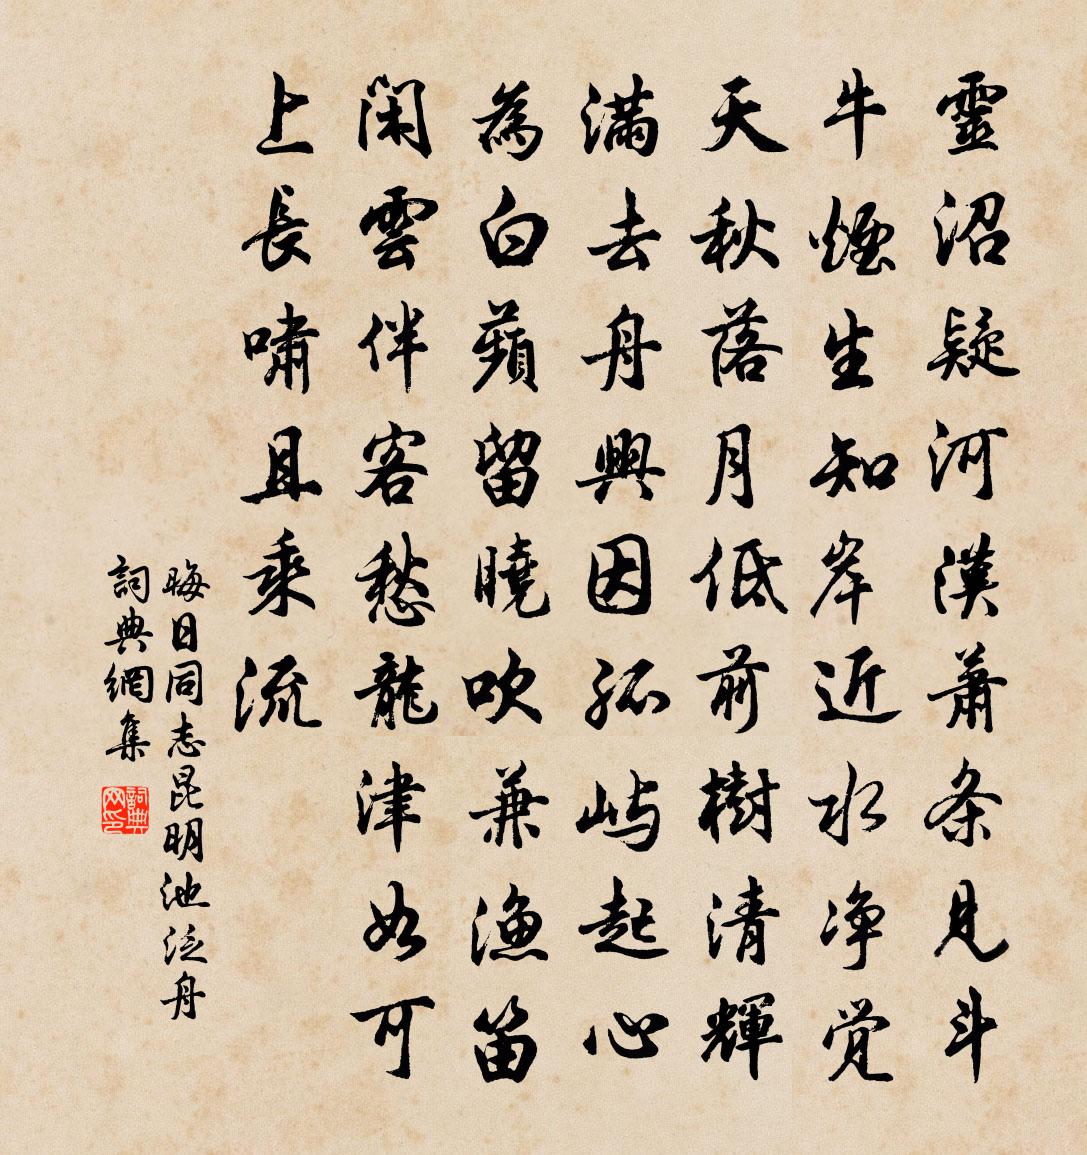 靈沼疑河漢蕭条見斗
牛煙生知岸近水净覚
天秋落月低前樹清輝
滿去舟興因孤屿起心
為白蘋留曉吹兼漁笛
閑雲伴客愁龍津如可
上長嘯且乘流
晦日同志昆明池泛舟
詞典網集
詞典网印